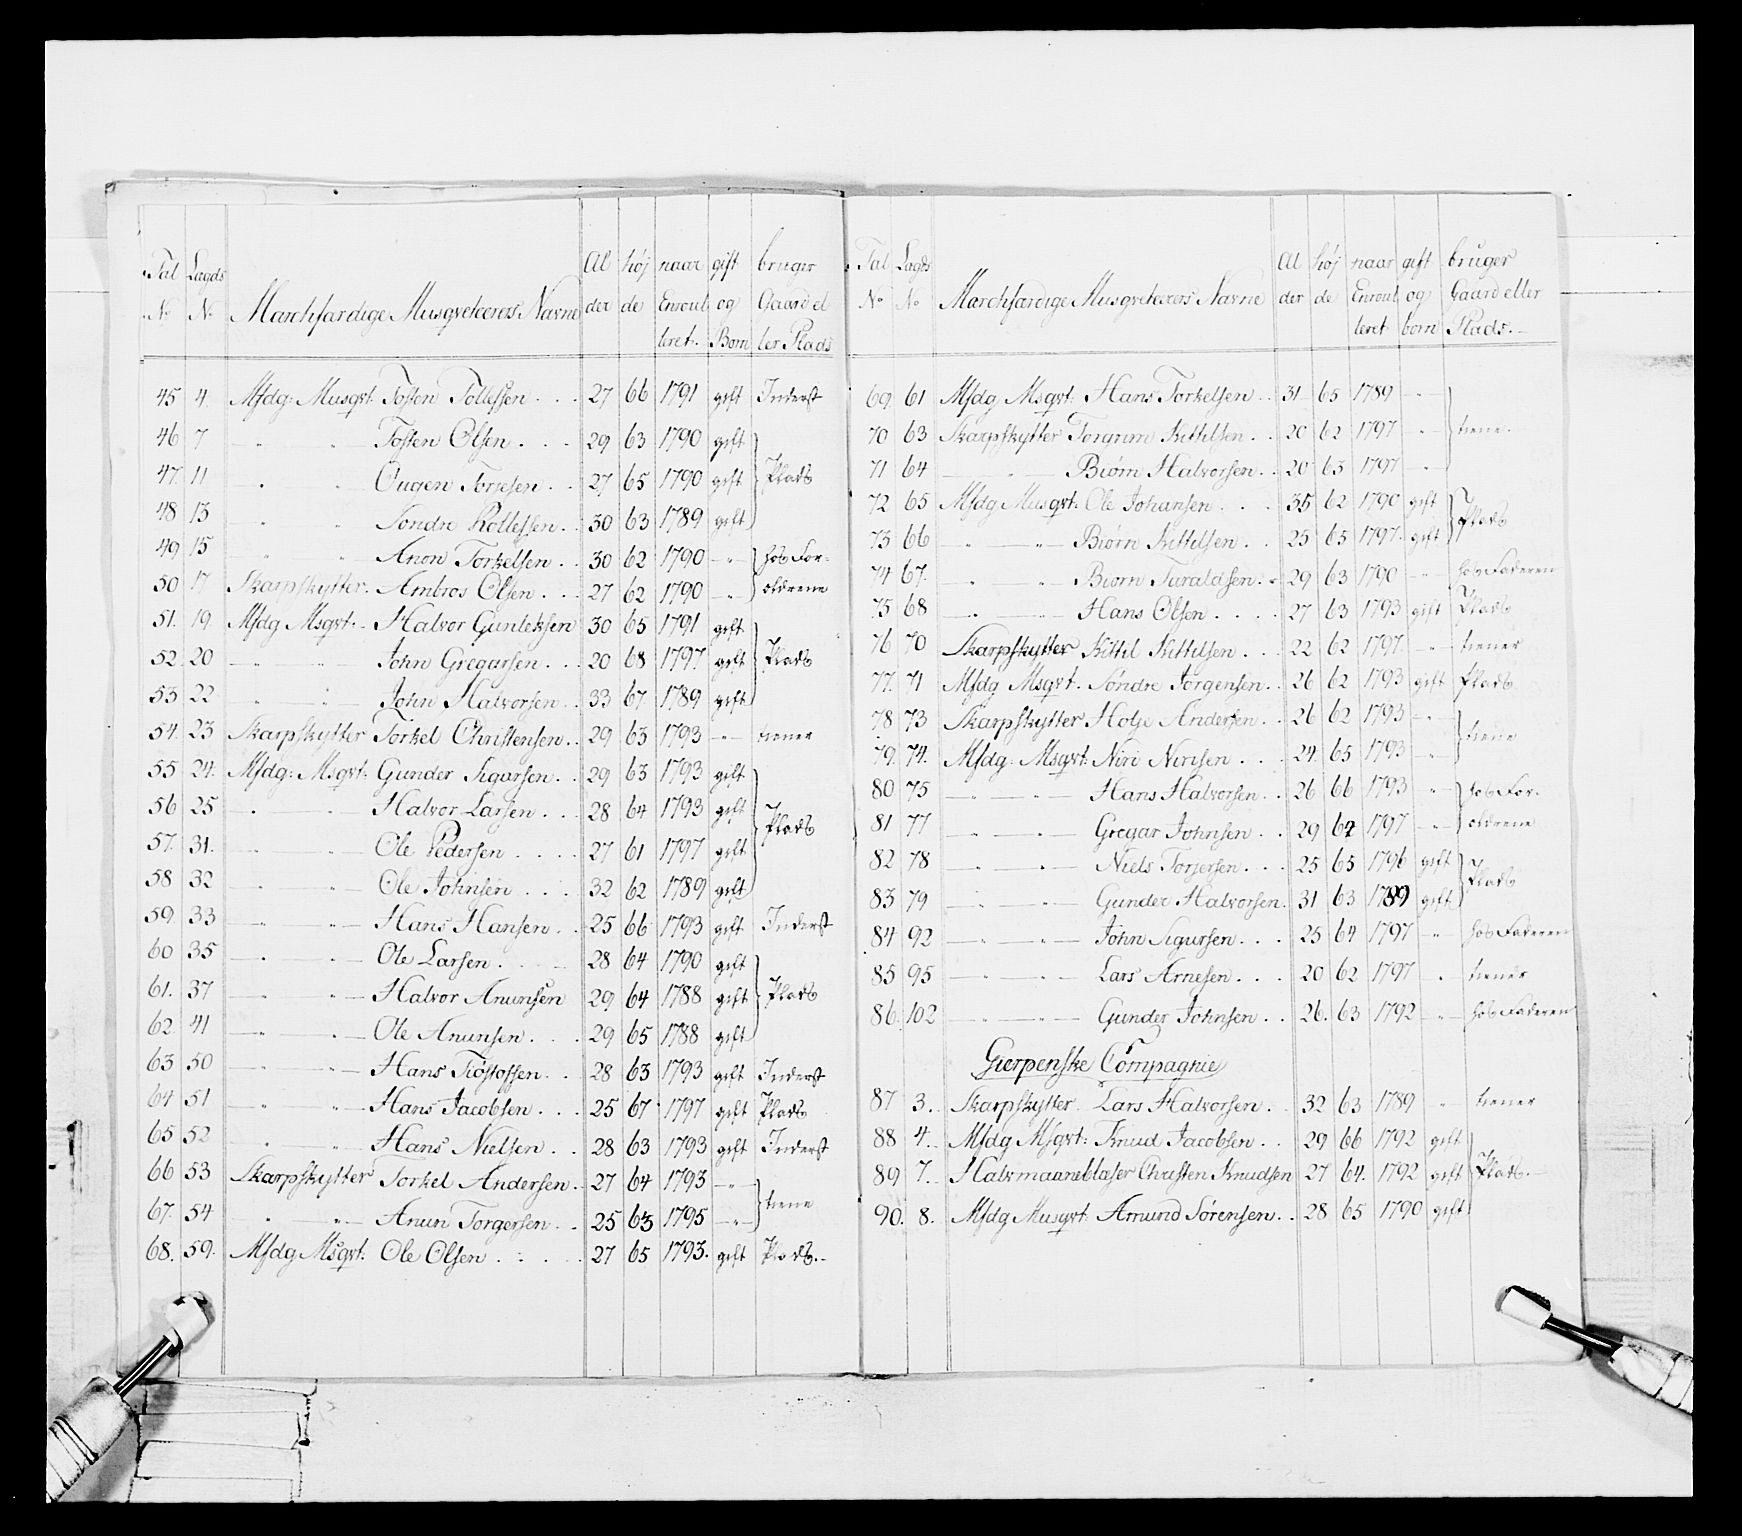 Tal No Lagds No Marchfærdige Musqveteerers Navne Al der høj de naar Enroul leret. gift og Børn bruger Gaard el ler Plads
45 4. Mfdg: Musqvt. Tosten Tollefsen 27 66 1791 gift Inderst
46 7 — " — Tosten Olsen 29 63 1790 gift
47. 11 " " Ougen Torjesen 27 65 1790 gift Plads
48 13 " " Sondre Rollefsen 30 63 1789 gift
49 15 " " Anon Torkelsen 30 62 1790 — " — hos For-
50 17 Skarpskytter. Ambros Olsen 27 62 1790 — " — ældrene
51. 19. Mfdg Msqvt. Halvor Gunleksen 30 65 1791 gift
52. 20 — " — John Gregarsen 20 68 1797 gift Plads
53. 22 " " John Halvorsen 33 67 1789 gift
54. 23 Skarpskytter Torkel Christensen 29 63 1793 — " — tiener
55 24. Mfdg: Msqvt: Gunder Sigursen 29 63 1793 gift
56 25 " — Halvor Larsen 28 64 1793 gift Plads
57. 31. — " — Ole Pedersen 27 61 1797 gift
58 32 — " — Ole Johnsen 32 62 1789 gift
59. 33 — " — Hans Hansen 25 66 1793 gift Inderst
60 35 — " — Ole Larsen 28 64 1790 gift
61. 37 — " — Halvor Anunsen 29 64 1788 gift Plads
62. 41 — " — Ole Anunsen 29 65 1788 gift
63 50 — " — Hans Tiøstofsen 28 63 1793 gift Inderst
64 51 " " — Hans Jacobsen 25 67 1797 gift Plads
65 52 — " — Hans Nielsen 28 63 1793 gift Inderst
66 53 Skarpskytter Torkel Andersen 27 64 1793 — " —
67. 54 " " — Anun Torgersen 25 63 1795 — " — tiene
68. 59. Mfdg Msqvt: Ole Olsen 27 65 1793. gift Plads.
Tal No Lagds No Marchfærdige Musqveteerers Navne Al der høj de naar Enroul leret gift og børn bruger Gaard eller Plads.
69 61 Mfdg Msqvt: Hans Torkelsen 31 65 1789 — " —
70 63 Skarpskytter Torgrim Kittelsen 20 62 1797 " tiene.
71 64 — " — Biørn Halvorsen 20 63 1797 — " —
72 65 Mfdg Musqvt: Ole Johansen 35 62 1790 gift Plads
73 66 — " — Biørn Kittelsen 25 65 1797. gift
74 67. " — " — Biørn Turaldsen 29 63 1790 — " — hos Faderen
75 68 — " — Hans Olsen 27 63 1793 gift Plads
76 70 Skarpskytter Kittil Kittilsen 22 62 1797 " tiener
77. 71 Mfdg Msqvt. Søndre Jørgensen 26 62 1793 gift Plads
78 73 Skarpskytter Holje Andersen 26 62 1793 — " —
79. 74. Mfdg: Msqvt: Niri Nirisen 24. 65 1793 " tiene
80 75 — " — Hans Halvorsen 26 66 1793 " hos For-
81 77 — " — Gregar Johnsen 29 64 1797 — " — ældrene
82 78 — " — Niels Torjersen 25 65 1796 gift
83 79 — " — Gunder Halvorsen 31 63 1789 gift Plads
84 92 — " — John Sigursen 25 64 1797 " hos Faderen
85 95 — " — Lars Arnesen 20 62 1797 " tiener
86. 102 — " — Gunder Johnsen 26. 63 1792 — " — hos Faderen
Gierpenske Compagnie
87 3. Skarpskytter Lars Halvorsen 32 63 1789 " tiener
88 4. Mfdg Msqvt: Knud Jacobsen 29 66 1792 gift
89 7. Halvmaaneblæser Christen Knudsen 27 64. 1792 gift Plads.
90. 8. Mfdg Musqvt. Amund Sørensen 28 65 1790 gift